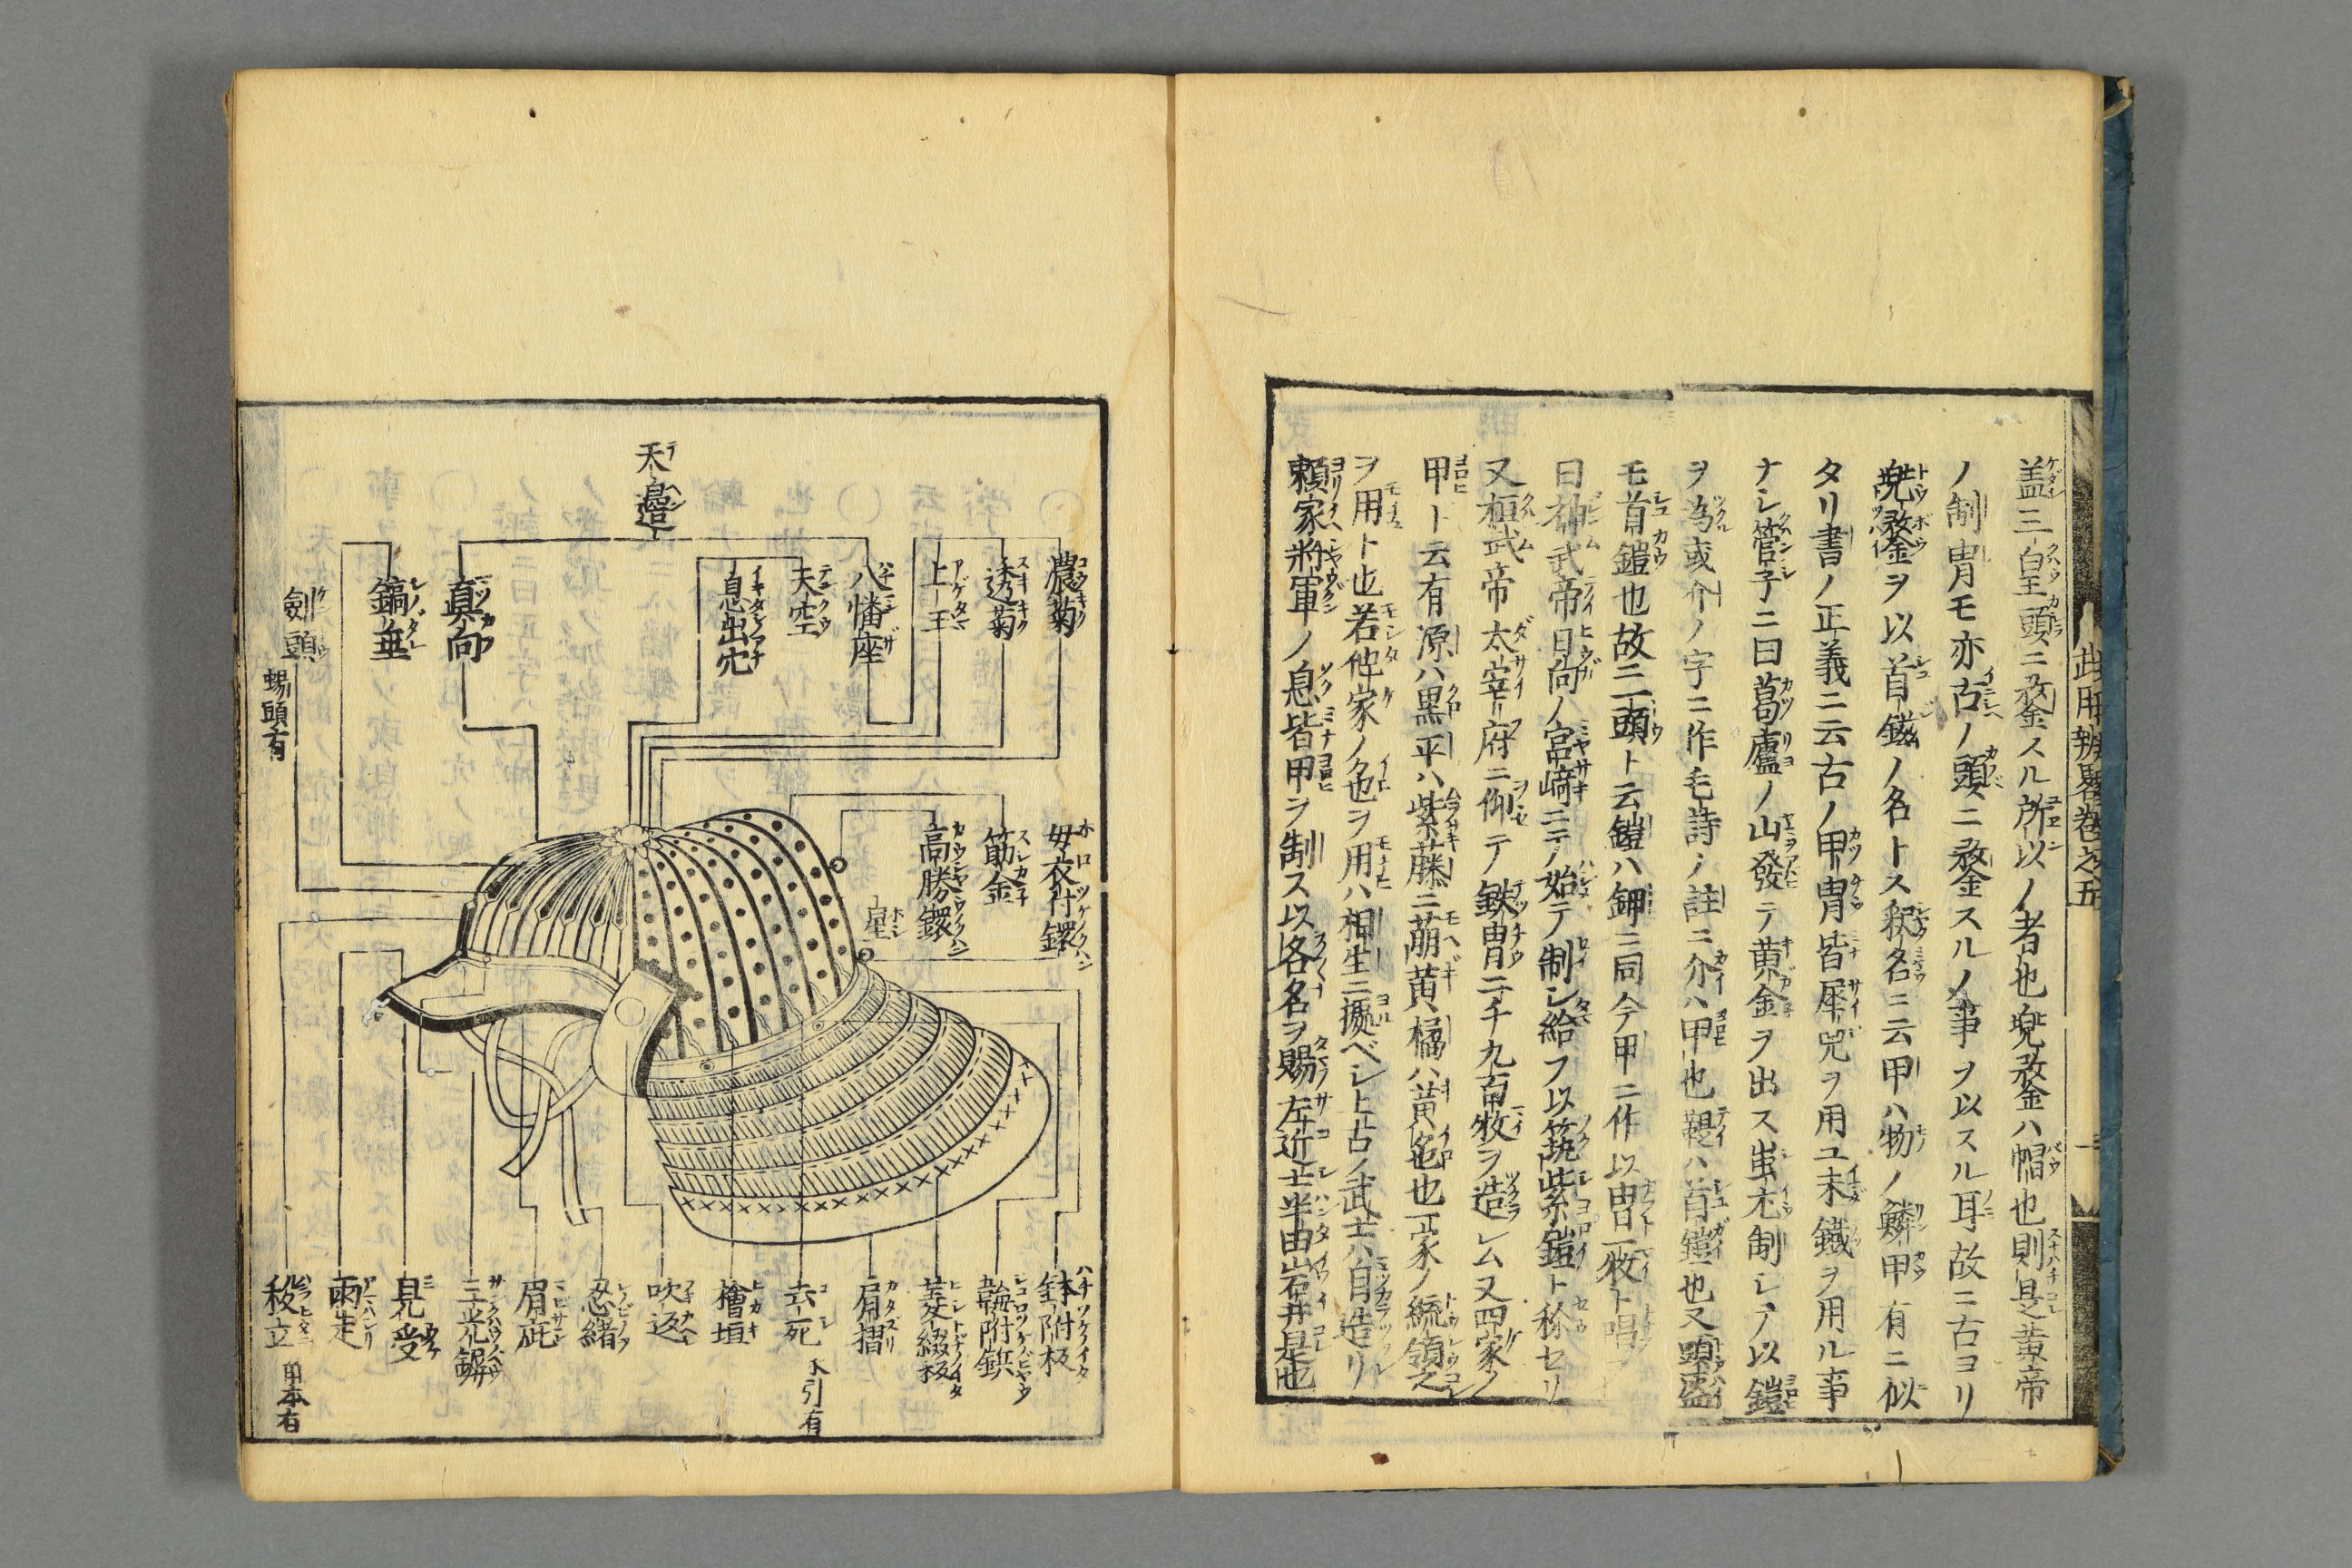 盖三皇頭ニ鍪スル所以ノ者也兜鍪ハ帽也則是黄帝
ノ制冑モ亦古ノ頭ニ鍪スルノ事ヲ以スル耳故ニ古ヨリ
兜鍪ヲ以首鎧ノ名トス釈名ニ云甲ハ物ノ鱗甲有ニ似
タリ書ノ正義ニ云古ノ甲冑皆犀兕ヲ用ユ未鐵ヲ用ル事
ナシ管子ニ曰葛廬ノ山發テ黄金ヲ出ス蚩尤制シテ以鎧
ヲ為或介ノ字ニ作毛詩ノ註ニ介ハ甲也鞮ハ首鎧也又頭盔
モ首鎧也故ニ頭ト云鎧ハ鉀ニ同今甲ニ作以冑一枚ト唱フ
曰神武帝日向ノ宮﨑ニテ始テ制シ給フ以筑紫鎧ト称セリ
又桓武帝太宰府ニ仰テ鉄冑二千九百枚ヲ造シム又四家ノ
甲ト云有源ハ黒平ハ紫藤ニ萌黄橘ハ黄色也一家ノ統領之
ヲ用ト也若他家ノ色ヲ用ハ相生ニ據ベシ上古ノ武士ハ自造リ
頼家将軍ノ息皆甲ヲ制ス以各名ヲ賜左近士半由岩井是也
此用弁畧巻之五
天邉
濃菊
透菊
上玉
八幡座
天空
息出穴
真向
鎬垂
劍頭
蜴頭有
母衣付鐶
筋金
高勝鐶
星
鉢附板
𩊱附鋲
菱綴板
肩摺
志死
水引有
檜垣
吹返
忍緒
眉庇
三光鋲
見受
雨走
秡立
甲本有